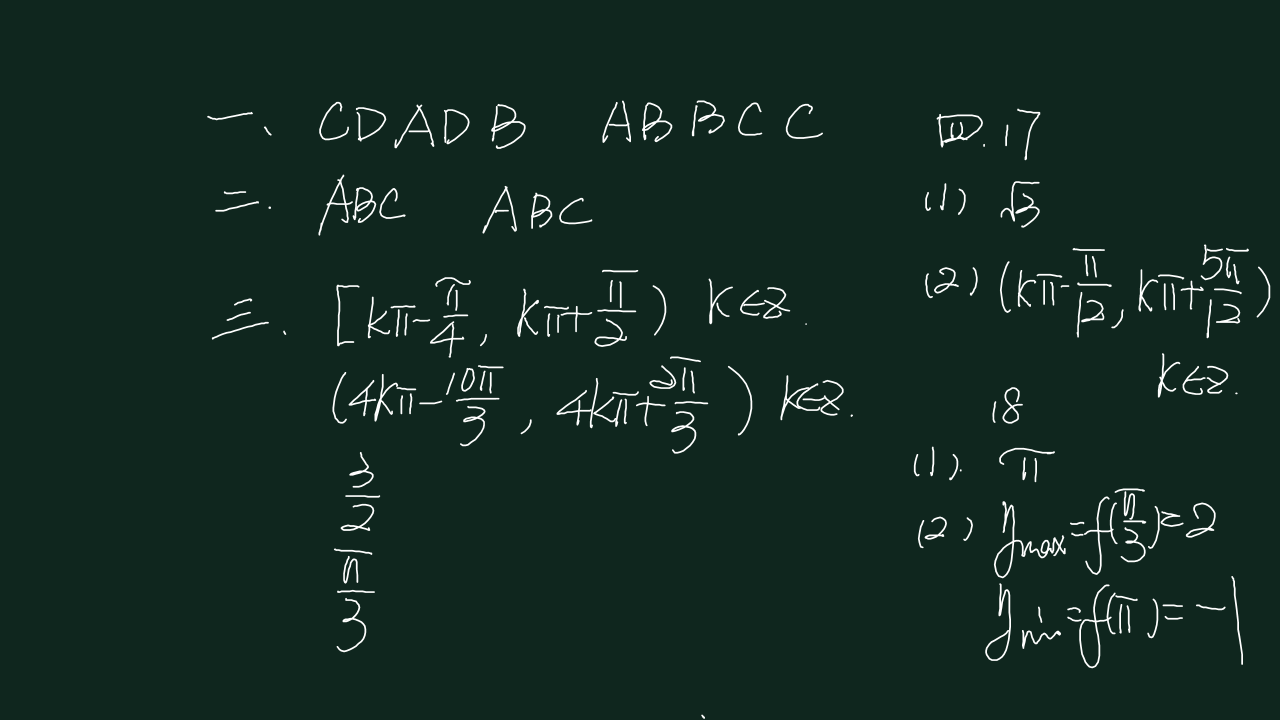 一、 CDADB ABBCC
二. ABC ABC
三. [kπ-π/4, kπ+π/2) k∈Z.
(4kπ-10π/3, 4kπ+2π/3) k∈Z.
3/2
π/3
四.17
(1) √3
(2) (kπ-π/12, kπ+5π/12)
k∈Z.
18
(1). π
(2) ymax=f(π/3)=2
ymin=f(π)=-1